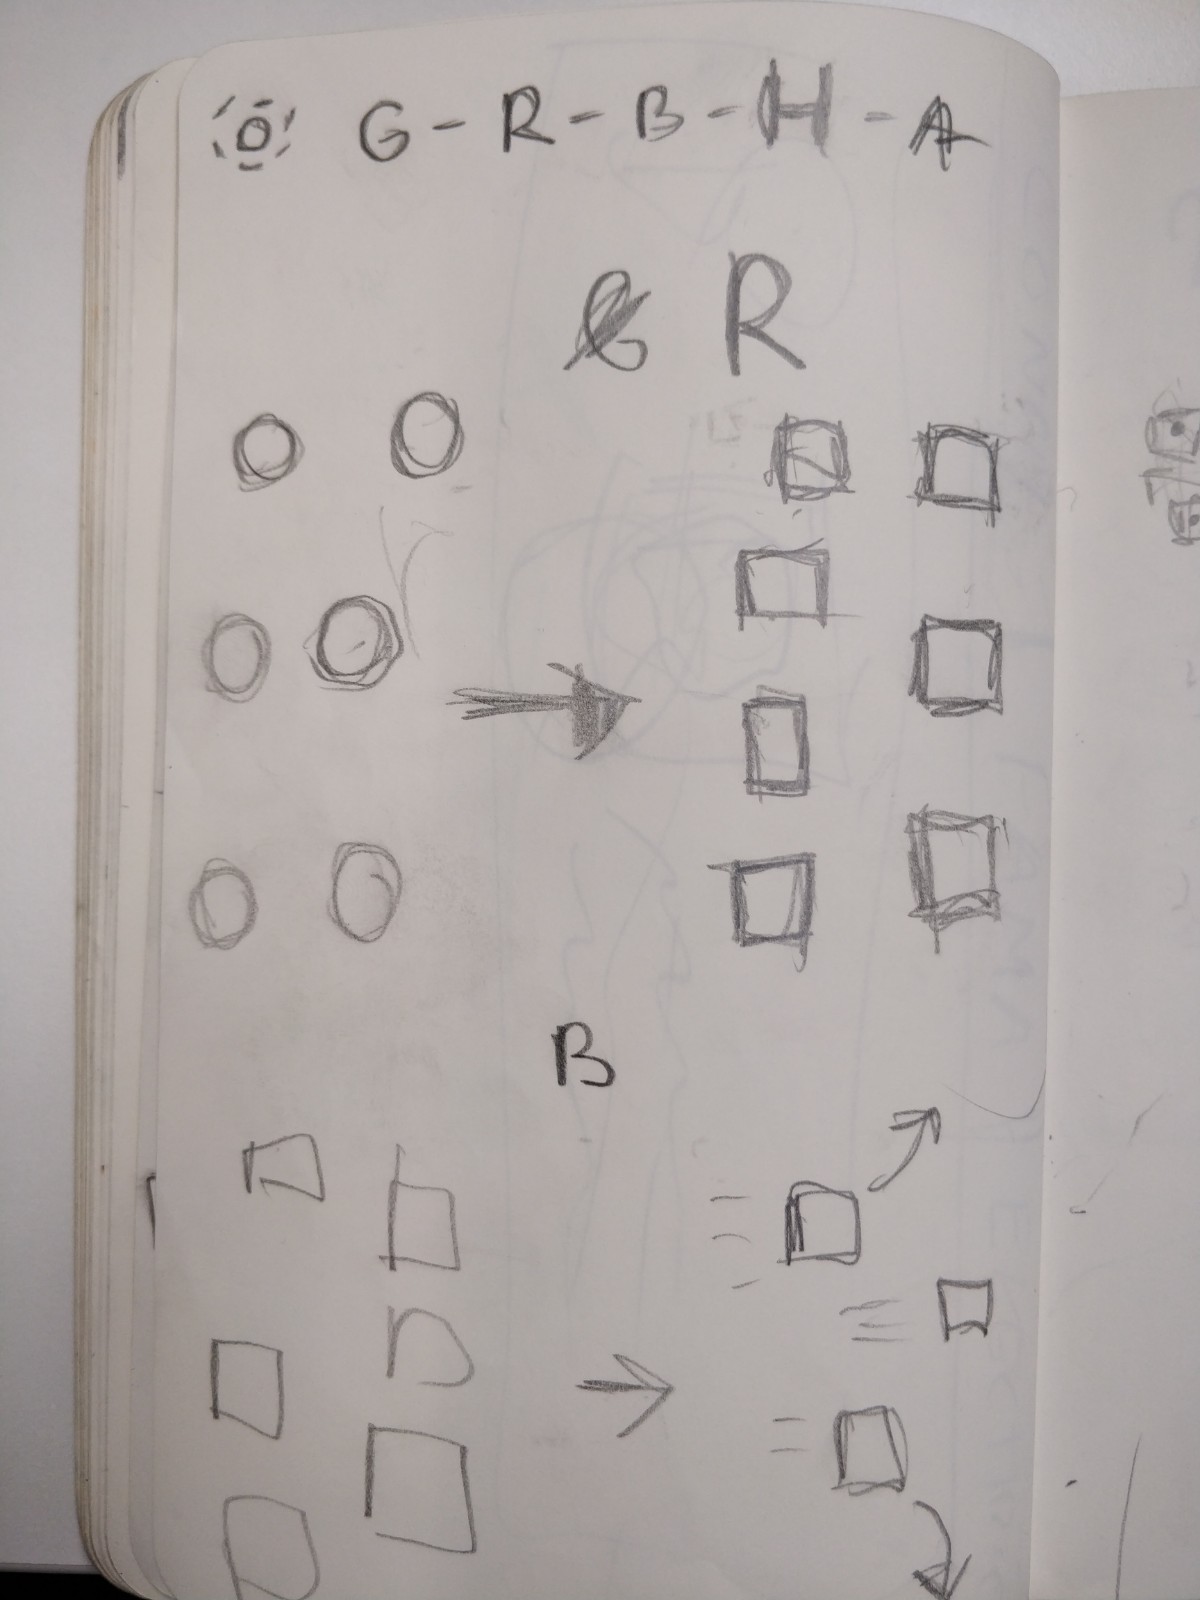 G - R - B - H - A
R
B